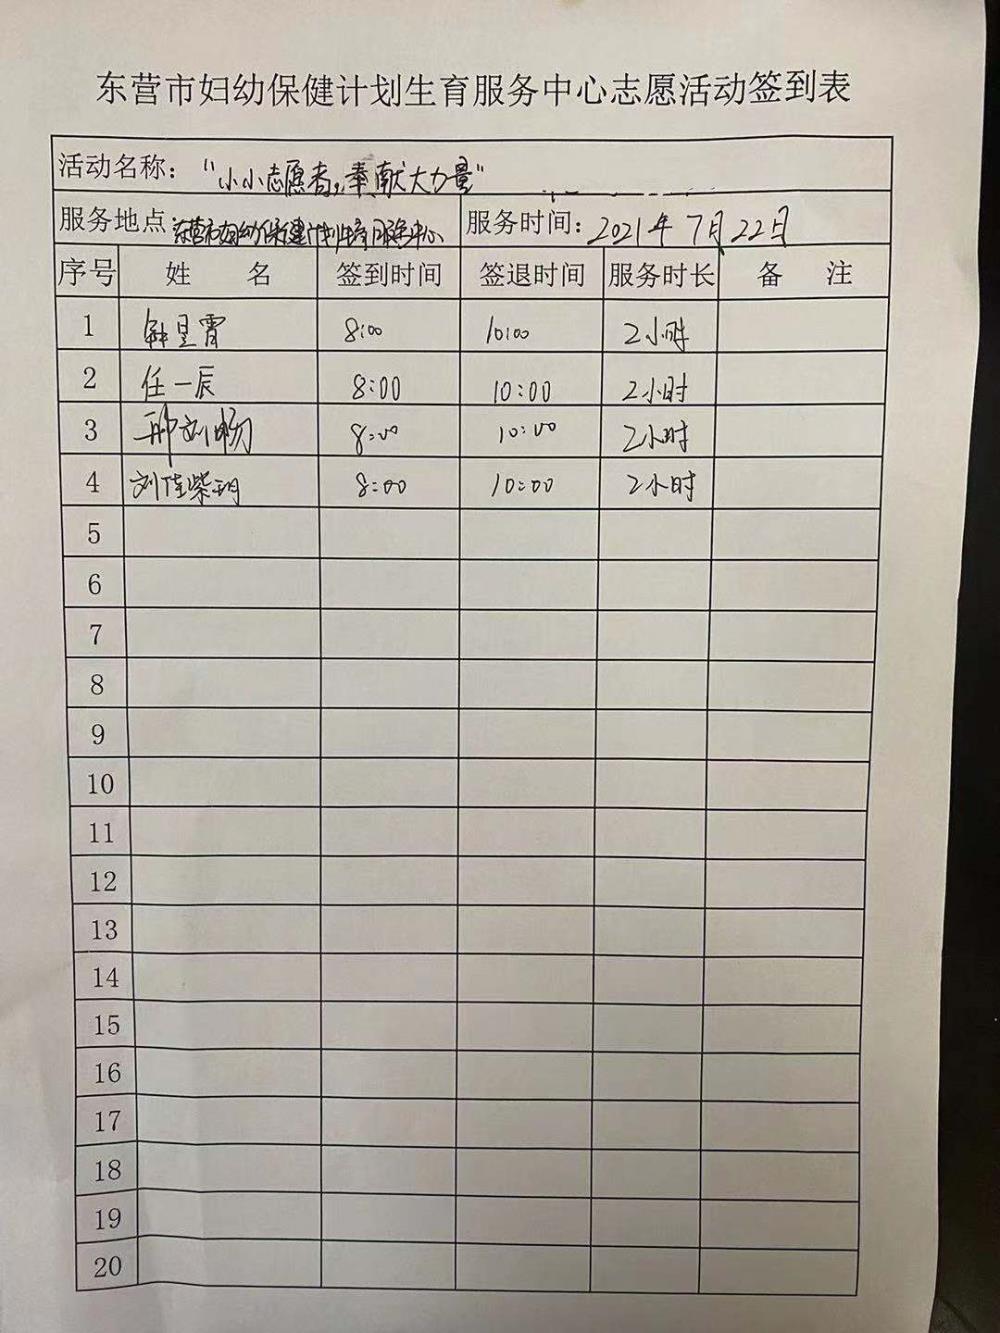 东营市妇幼保健计划生育服务中心志愿活动签到表
活动名称：“小小志愿者，奉献大力量”
服务地点：东营市妇幼保健计划生育服务中心 服务时间：2021年7月22日
序号 姓 名 签到时间 签退时间 服务时长 备 注
1 昱霄 8:00 10:00 2小时
2 任一辰 8:00 10:00 2小时
3 邢刘畅 8:00 10:00 2小时
4 刘佳柴玥 8:00 10:00 2小时
5
6
7
8
9
10
11
12
13
14
15
16
17
18
19
20